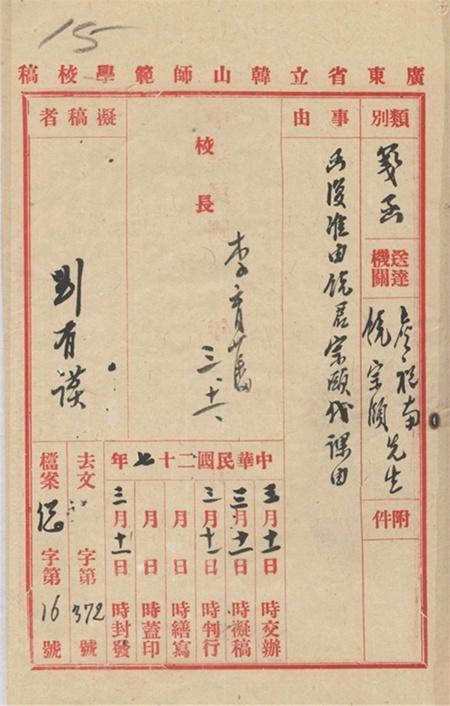 15
廣東省立韓山師範學校稿
類別
箋函
送達
機關
詹祝南
饒宗頤先生
附件
事由
函復准由饒君宗頤代課由
校長
李育藩
三、十一
擬稿者
劉有謨
中華民國二十七年
三月十一日 時交辦
三月十一日 時擬稿
三月十一日 時判行
月 日 時繕寫
月 日 時蓋印
三月十一日 時封發
去文 字第372號
檔案 字第16號